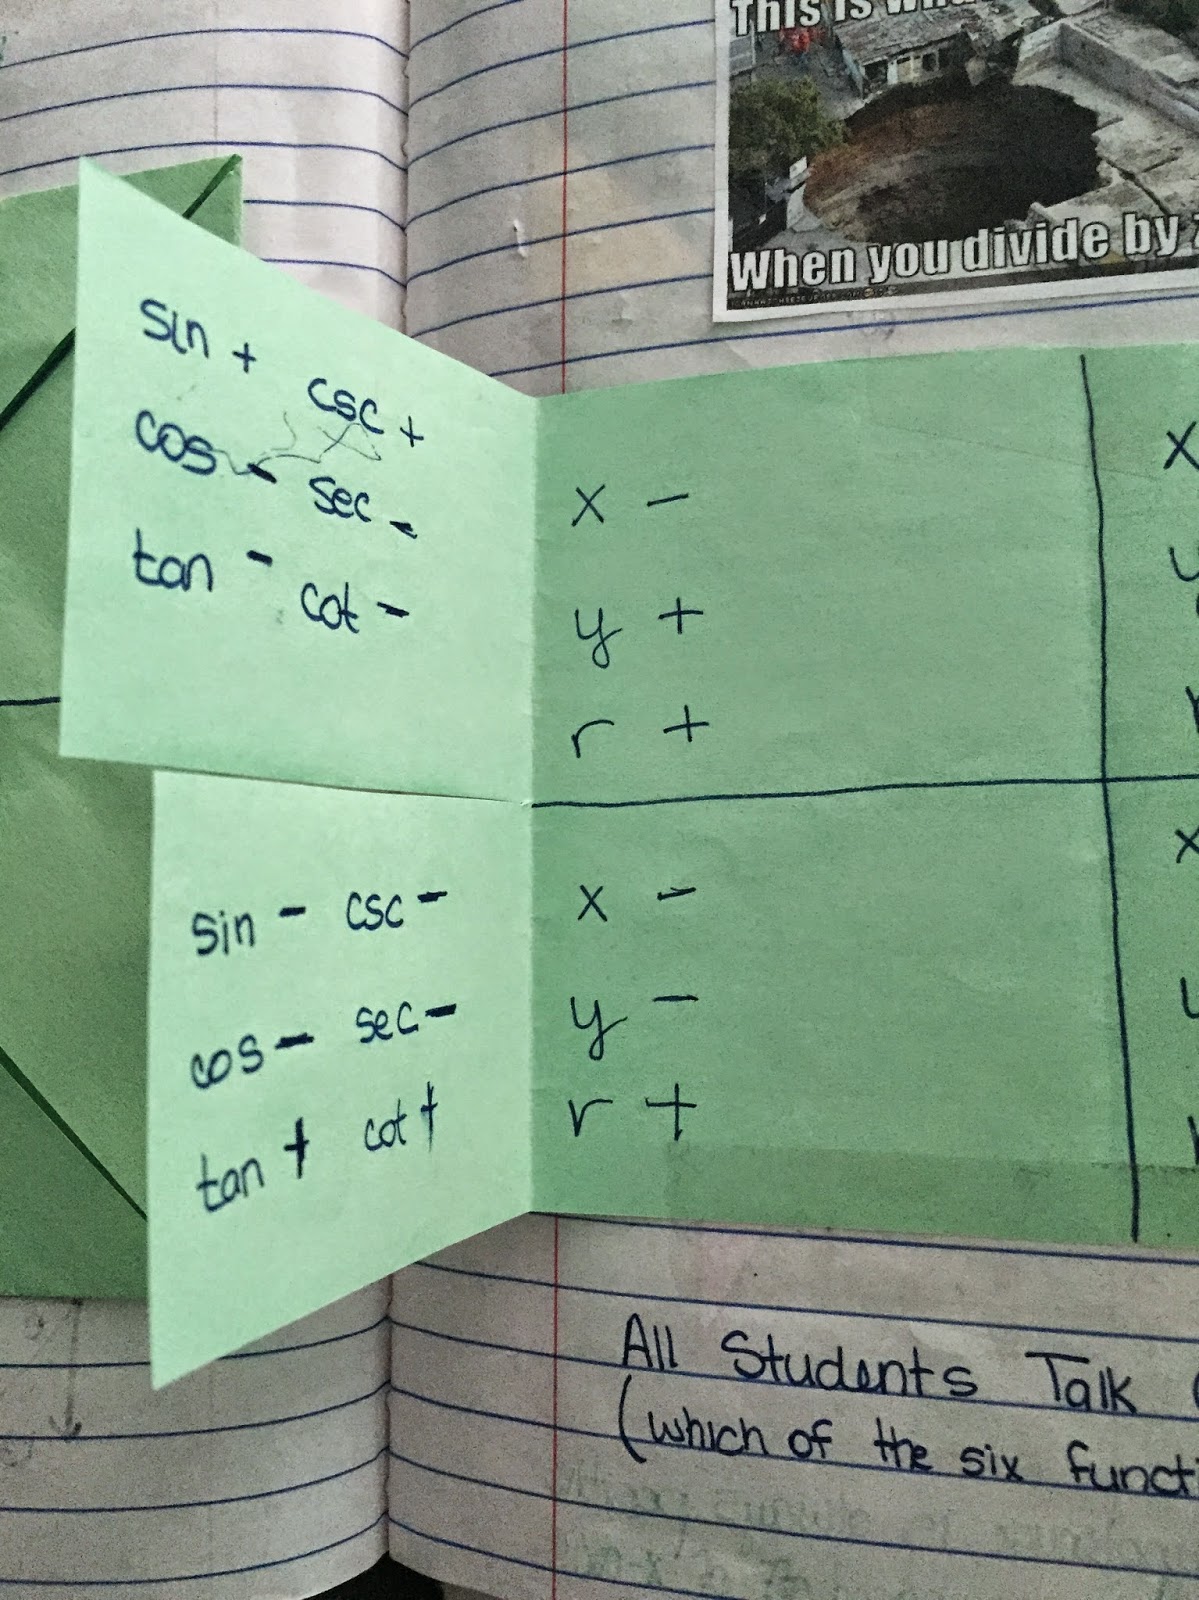 This is
When you divide by
sin + csc +
cos - sec -
tan - cot -
x -
y +
r +
x
sin - csc -
cos - sec -
tan + cot +
x -
y -
r +
x
All Students Talk
(which of the six